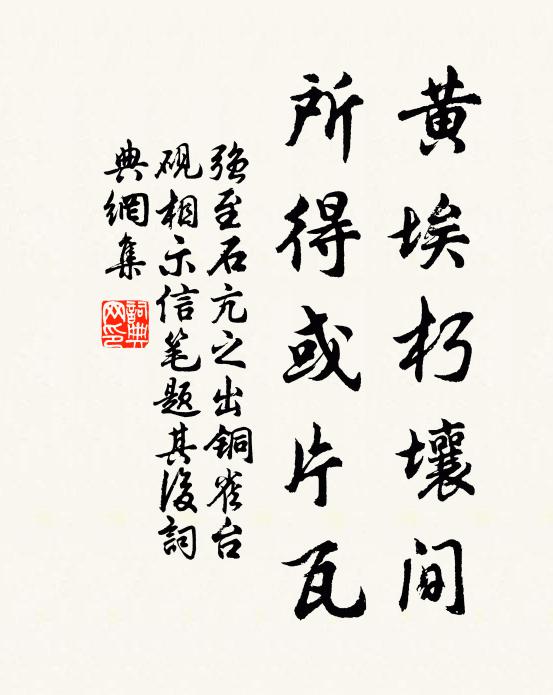 黄埃朽壤间
所得或片瓦
强至石亢之出铜雀台
砚相示信笔题其后詞
典網集
詞典
网印